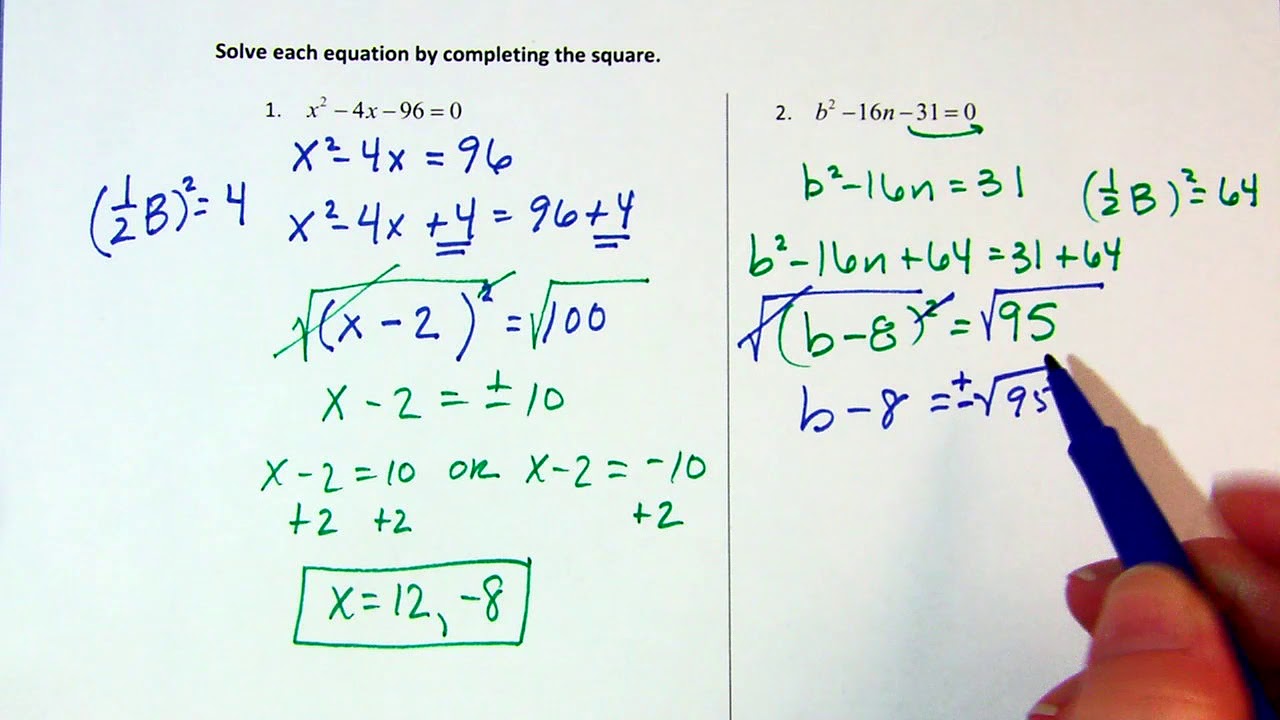 Solve each equation by completing the square.
1. x² − 4x − 96 = 0
x² − 4x = 96
(½B)² = 4
x² − 4x + 4 = 96 + 4
√(x − 2)² = √100
x − 2 = ± 10
x − 2 = 10 or x − 2 = −10
+2 +2 +2
x = 12, −8
2. b² − 16n − 31 = 0
b² − 16n = 31
(½B)² = 64
b² − 16n + 64 = 31 + 64
√(b − 8)² = √95
b − 8 = ± √95